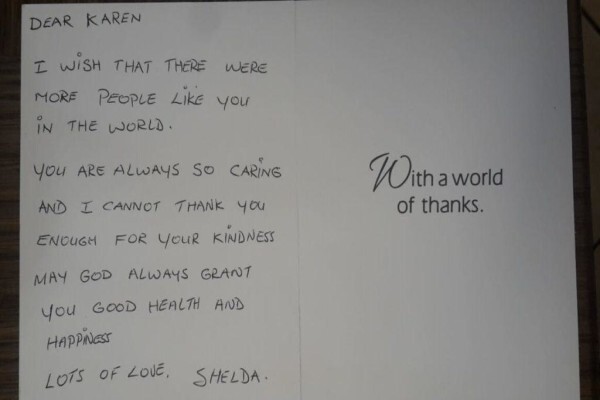 DEAR KAREN
I WISH THAT THERE WERE
MORE PEOPLE LIKE YOU
IN THE WORLD.
YOU ARE ALWAYS SO CARING
AND I CANNOT THANK YOU
ENOUGH FOR YOUR KINDNESS
MAY GOD ALWAYS GRANT
YOU GOOD HEALTH AND
HAPPINESS
LOTS OF LOVE. SHELDA.
With a world
of thanks.